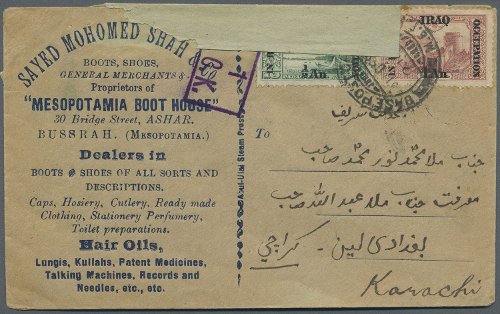 SAYED MOHOMED SHAH &
BOOTS, SHOES,
GENERAL MERCHANTS &
Proprietors of
"MESOPOTAMIA BOOT HOUSE"
30 Bridge Street, ASHAR.
BUSSRAH, (MESOPOTAMIA.)
Dealers in
BOOTS & SHOES OF ALL SORTS AND
DESCRIPTIONS.
Caps, Hosiery, Cutlery, Ready made
Clothing, Stationery Perfumery,
Toilet preparations.
Hair Oils,
Lungis, Kullahs, Patent Medicines,
Talking Machines, Records and
Needles, etc., etc.
G.K.
IRAQ
OCCUPATION
1 An
½ An
BASE POST
To
شریف
جناب ملا محمد نور محمد صاحب
معرفت جناب ملا عبد الله صاحب
بغدادی لین - کراچی
Karachi